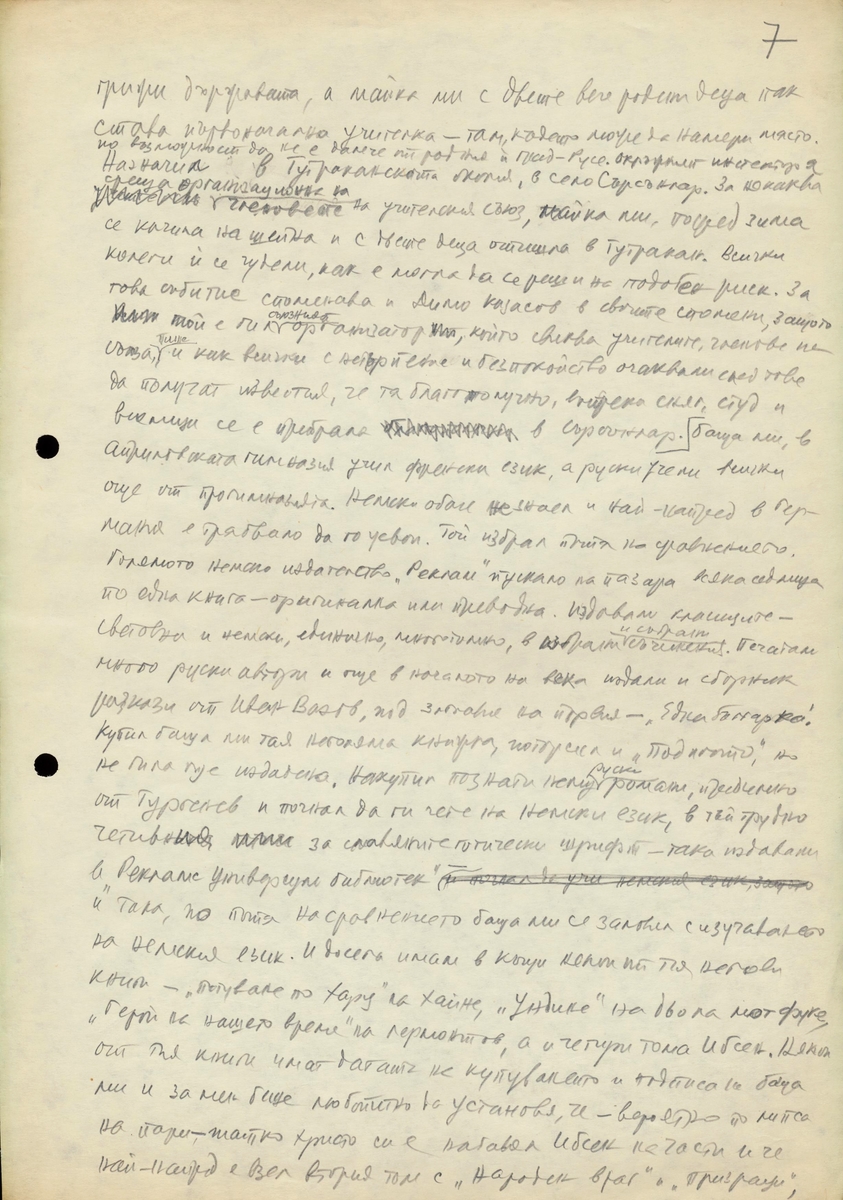 7
грижи държавата, а майка ми с двете вече родени деца пак
става първоначална учителка – там, където може да намери място.
по възможност да не е далече от родния ѝ град – Русе. Окръжният инспектор я
назначил в Тутраканската околия, в село Сърсънлар. За някаква
среща организационна на
членовете на учителския съюз, майка ми, посред зима
се качила на шейна и с двете деца отишла в Тутракан. Всички
колеги ѝ се чудели, как е могла да се реши на подобен риск. За
това събитие споменава и Димо Казасов в своите спомени, защото
той е бил съюзният организатор, който свиквал учителите, членове на
съюза, пише и как всички с нетърпение и безпокойство очаквали след това
да получат известия, че тя благополучно, въпреки сняг, студ и
вълци се е прибрала в Сърсънлар. [Баща ми, в
Априловската гимназия учил френски език, а руски учели всички
още от прогимназията. Немски обаче не знаел и най-напред в Гер-
мания е трябвало да го усвои. Той избрал пътя на сравнението.
Голямото немско издателство „Реклам" пускало на пазара всяка седмица
по една книга – оригинална или преводна. Издавали класиците –
световни и немски, единично, многотомно, в избрани и събрани съчинения. Печатали
много руски автори и още в началото на века издали и сборник
разкази от Иван Вазов, под заглавие на първия – „Една българка".
Купил баща ми тая неголяма книга, потърсил и „Под игото", но
не била още издадена. Накупил познати нему руски романи, предимно
от Тургенев и почнал да ги чете на немски език, в тоя трудно
четивния за славяните готически шрифт – така издавани
в „Рекламс универсум библиотек"
И така, по пътя на сравнението баща ми се заловил с изучаването
на немския език. И досега имам в къщи някои от тия негови
книги – „Пътуване по Харц" на Хайне, „Ундине" на дьо ла Мот Фуке,
„Герой на нашето време" на Лермонтов, а и четири тома Ибсен. Някои
от тия книги имат датата на купуването и подписа на баща
ми и за мен беше любопитно да установя, че – вероятно по липса
на пари – татко Христо си е набавял Ибсен на части и че
най-напред е взел втория том с „Народен враг" и „Призраци",